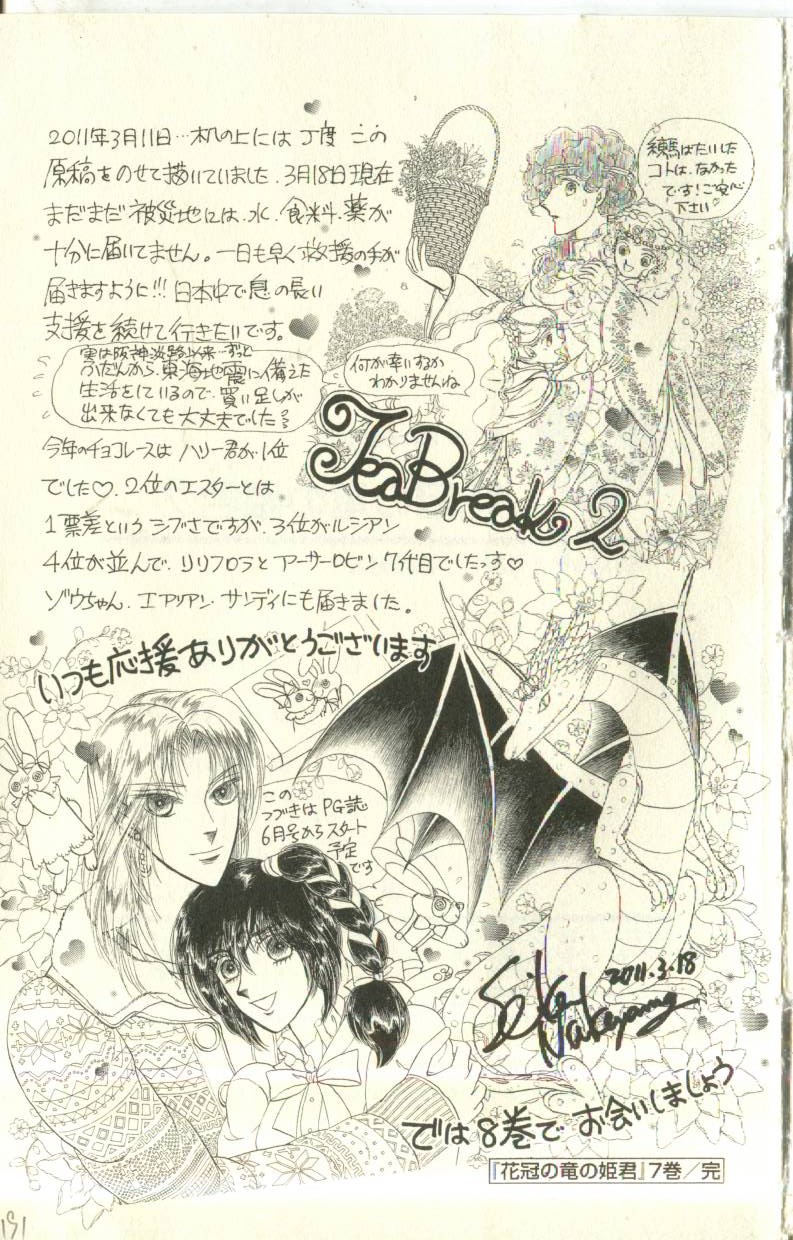 2011年3月11日…机の上には丁度この
原稿をのせて描いていました。3月18日現在
まだまだ被災地には、水、食料、薬が
十分に届いてません。一日も早く救援の手が
届きますように!!! 日本中で息の長い
支援を続けて行きたいです。
実は阪神淡路以来…ずっと
ふだんから、東海地震に備えた
生活をしているので、買い足しが
出来なくても大丈夫でした
練馬はたいした
コトは、なかった
です!ご安心
下さい
何が幸いするか
わかりませんね
Tea Break 2
今年のチョコレースは ハリー君が1位
でした♡. 2位のエスターとは
1票差というシブさですが、3位がルシアン
4位が並んで、リリフロラとアーサーロビン7代目でしたっす♡
ゾウちゃん、エアリアン、サンディにも届きました。
いつも応援ありがとうございます
この
つづきはPG誌
6月号からスタート
予定
です
2011.3.18
Seika Nakayama
では8巻で お会いしましょう
『花冠の竜の姫君』7巻/完
191